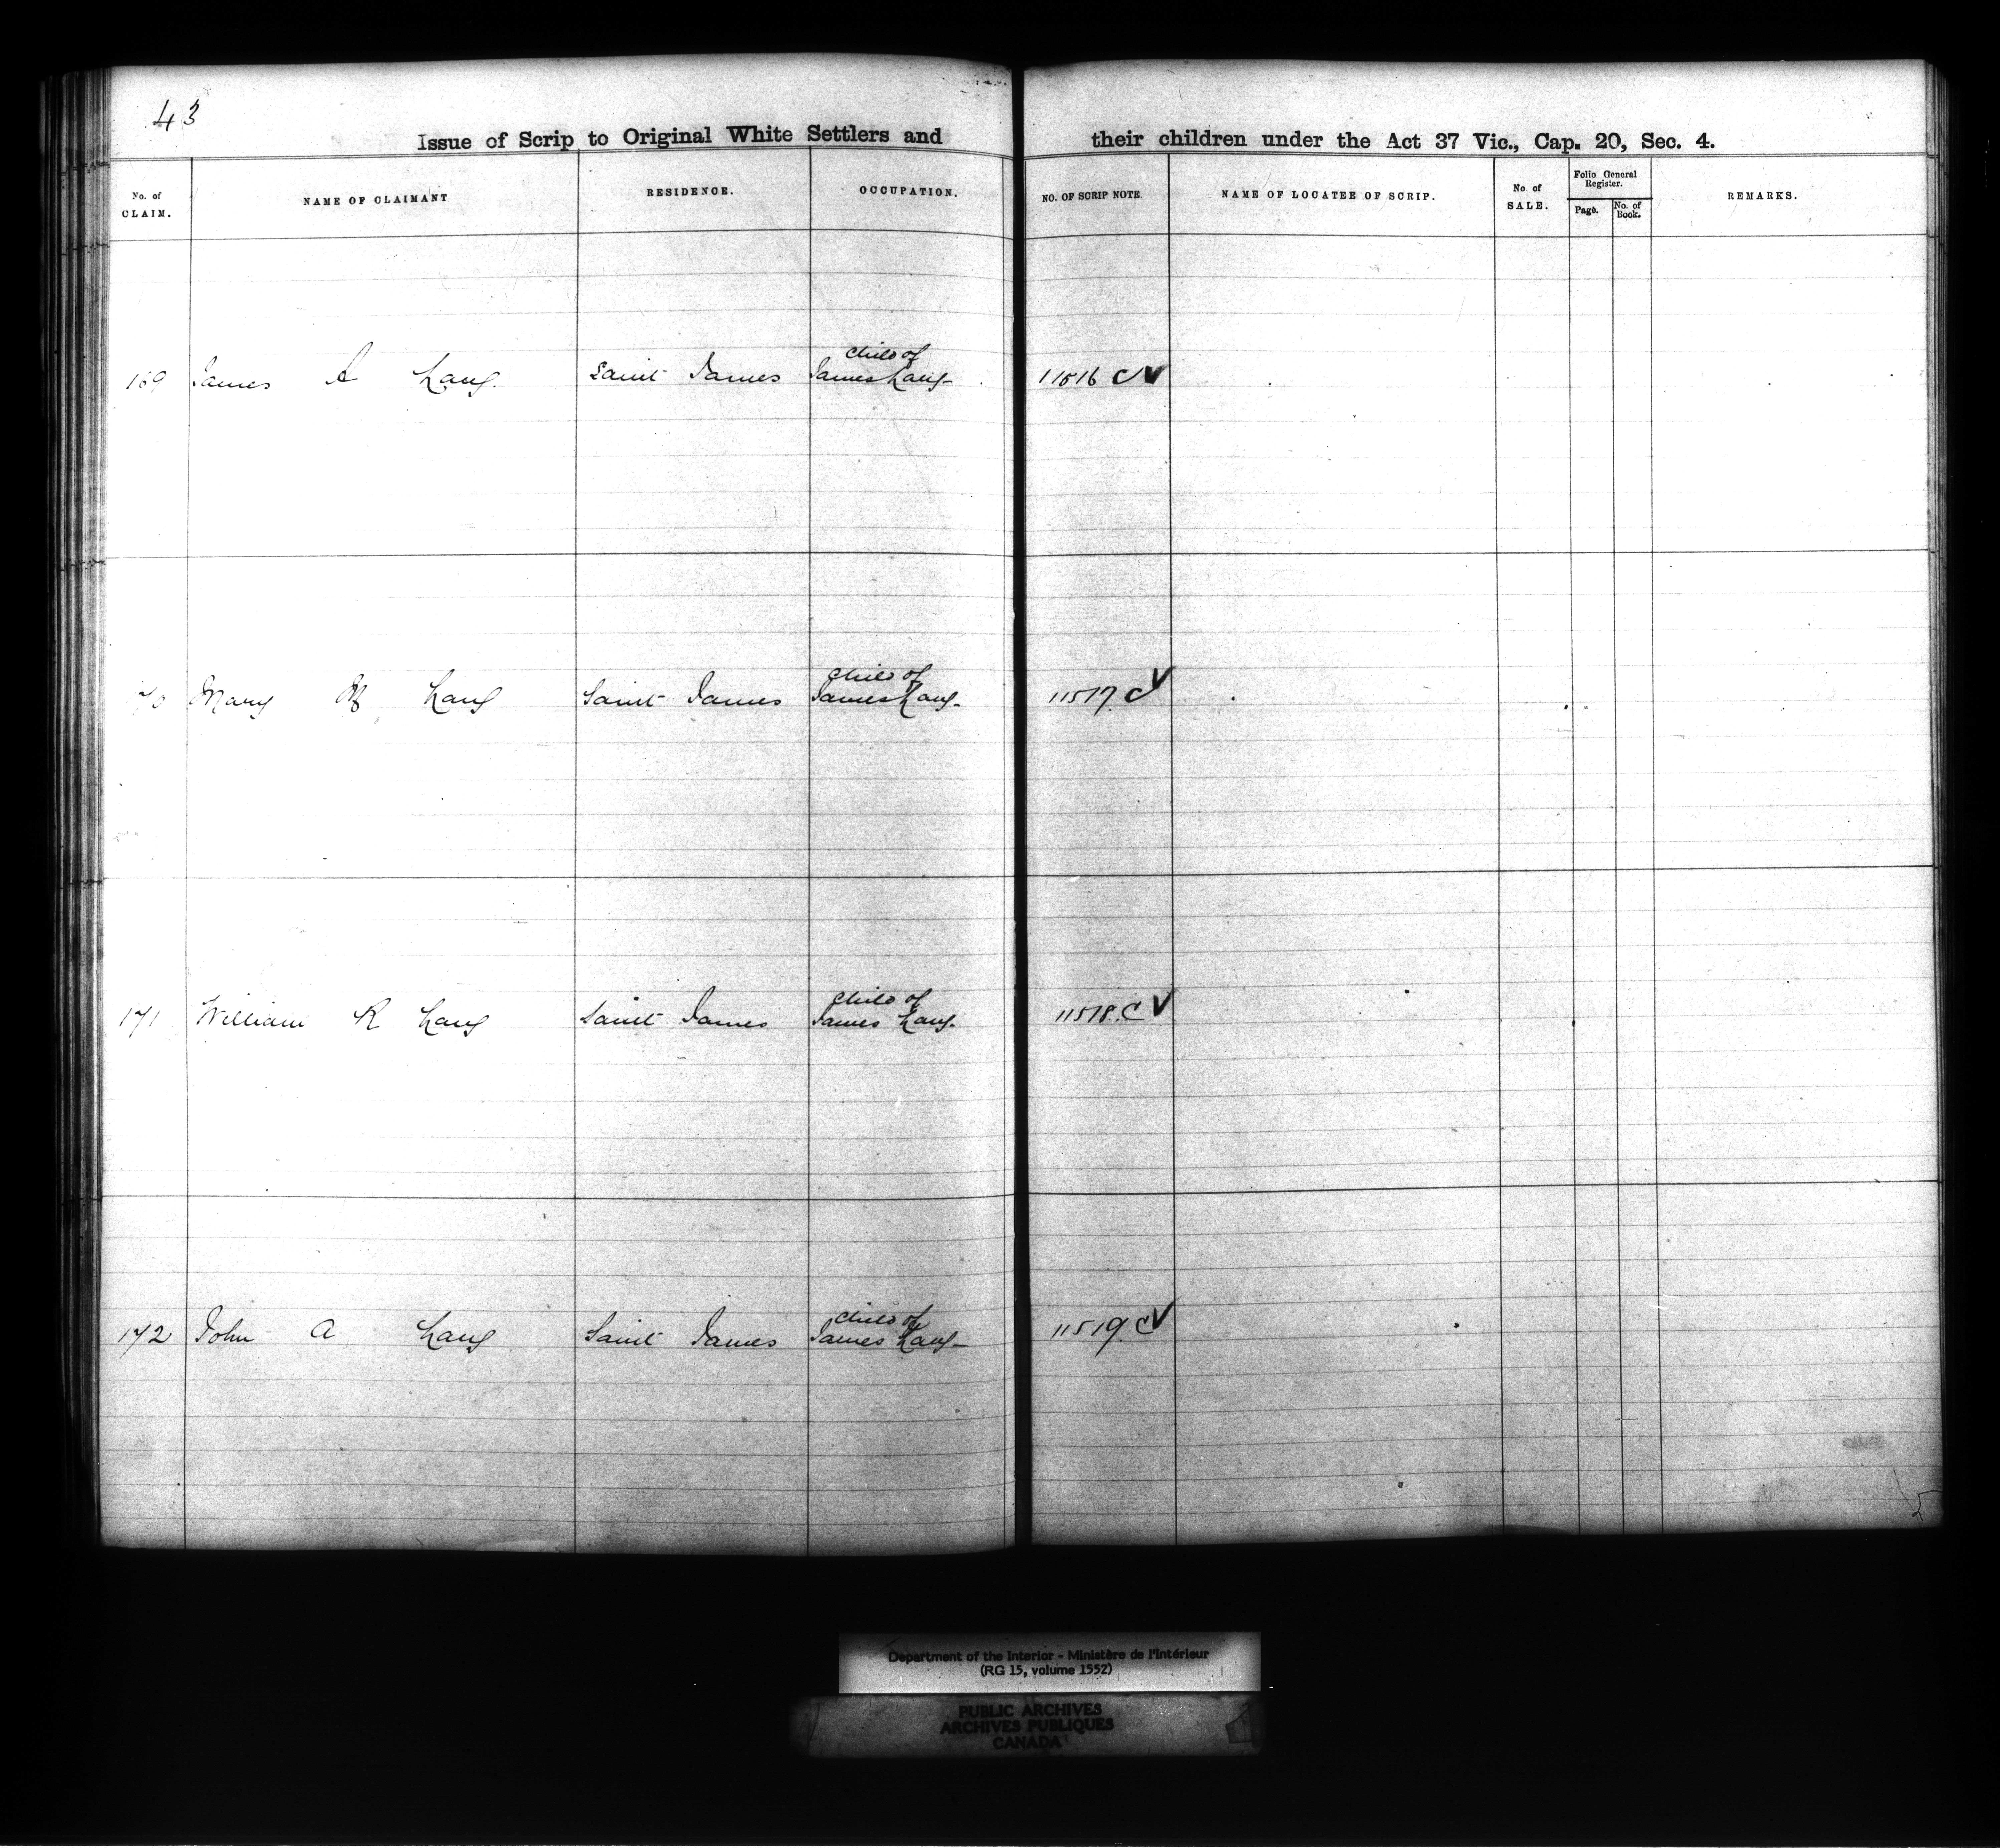 43
Issue of Scrip to Original White Settlers and their children under the Act 37 Vic., Cap. 20, Sec. 4.
No. of CLAIM. NAME OF CLAIMANT RESIDENCE. OCCUPATION. NO. OF SCRIP NOTE. NAME OF LOCATEE OF SCRIP. No. of SALE. Folio General Register. Page. No. of Book. REMARKS.
child of
169 James A Lang. Saint James James Lang- 11516 C
child of
Mary M Lang Saint James James Lang- 11517 C
child of
171 William R Lang Saint James James Lang- 11518 C
child of
172 John A Lang Saint James James Lang- 11519 C
Department of the Interior - Ministère de l'Intérieur
(RG 15, volume 1552)
PUBLIC ARCHIVES
ARCHIVES PUBLIQUES
CANADA